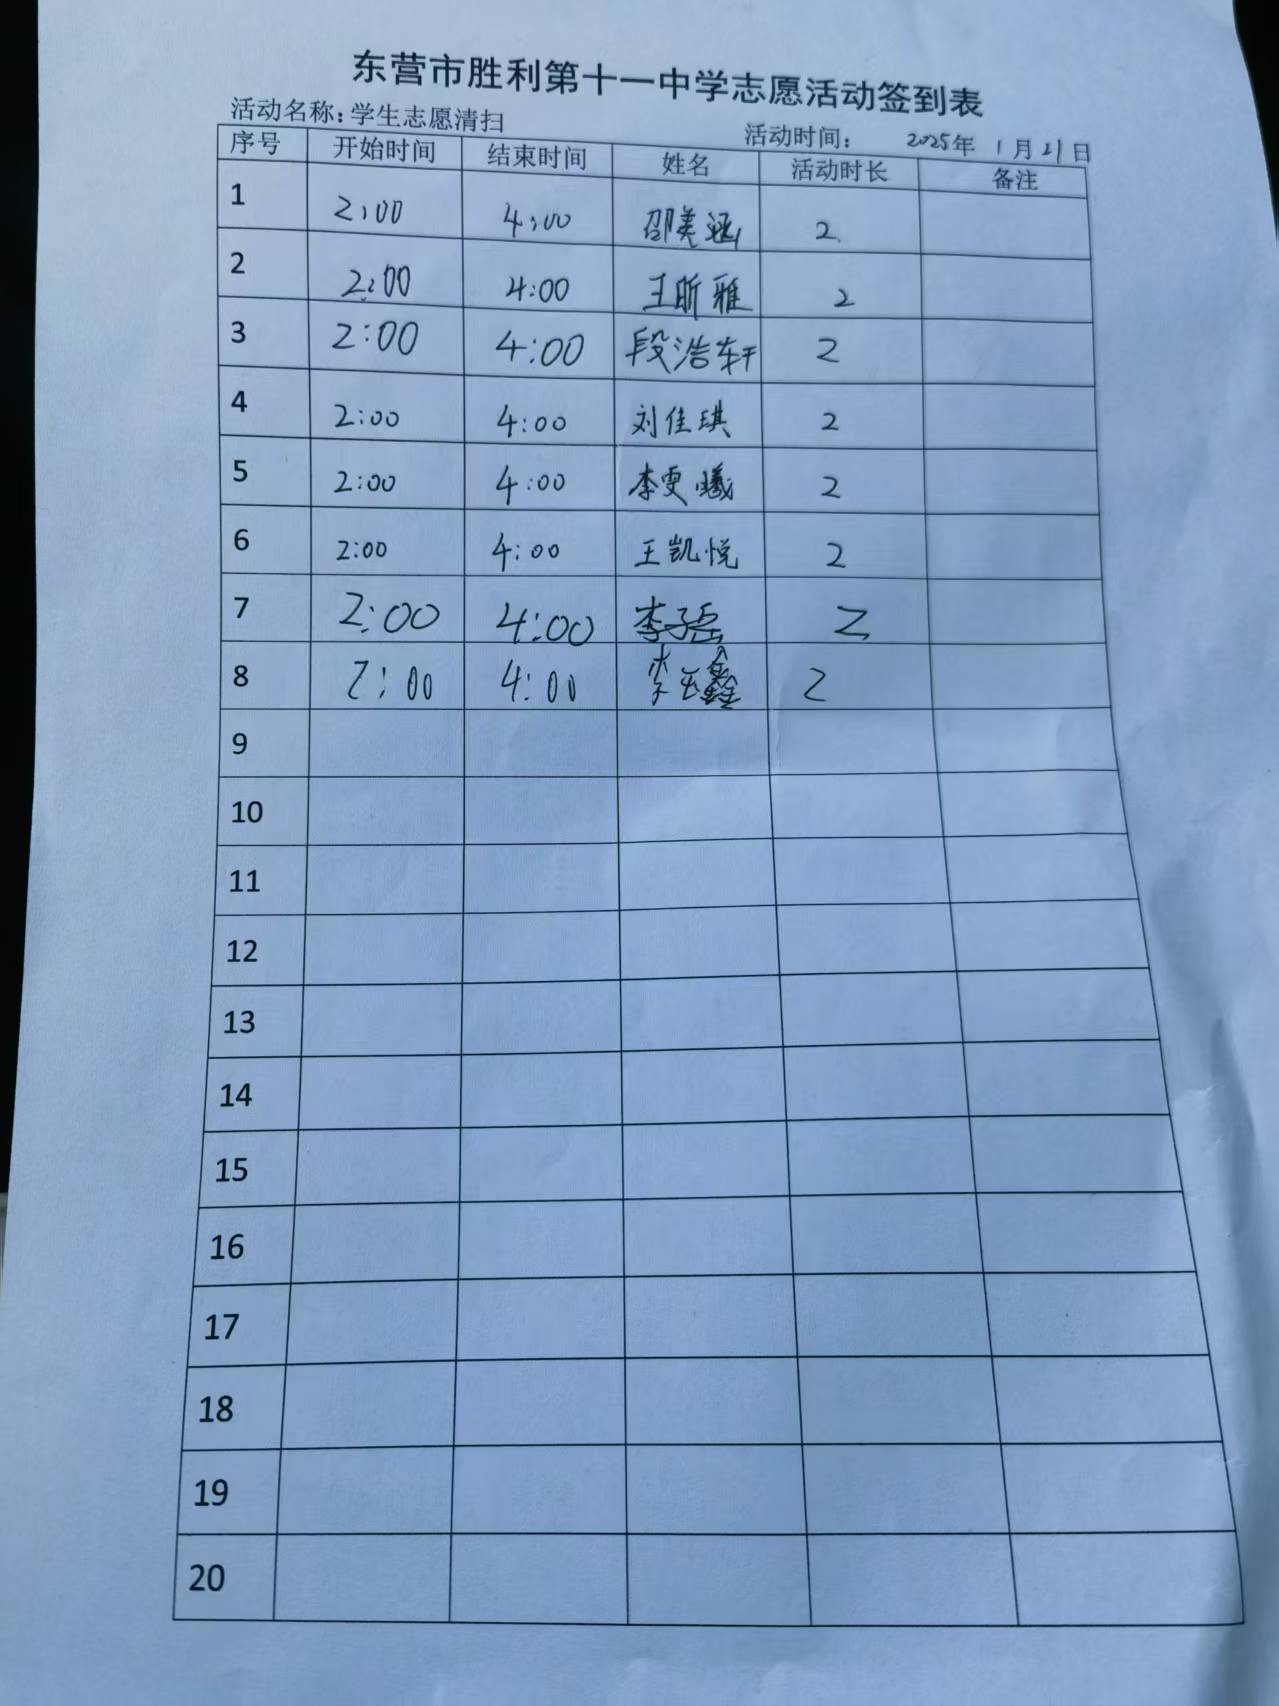 东营市胜利第十一中学志愿活动签到表
活动名称：学生志愿清扫 活动时间： 2025年 1月21日
序号 开始时间 结束时间 姓名 活动时长 备注
1 2:00 4:00 邵美涵 2
2 2:00 4:00 王昕雅 2
3 2:00 4:00 段浩轩 2
4 2:00 4:00 刘佳琪 2
5 2:00 4:00 李雯曦 2
6 2:00 4:00 王凯悦 2
7 2:00 4:00 李子岳 2
8 2:00 4:00 李玉鑫 2
9
10
11
12
13
14
15
16
17
18
19
20